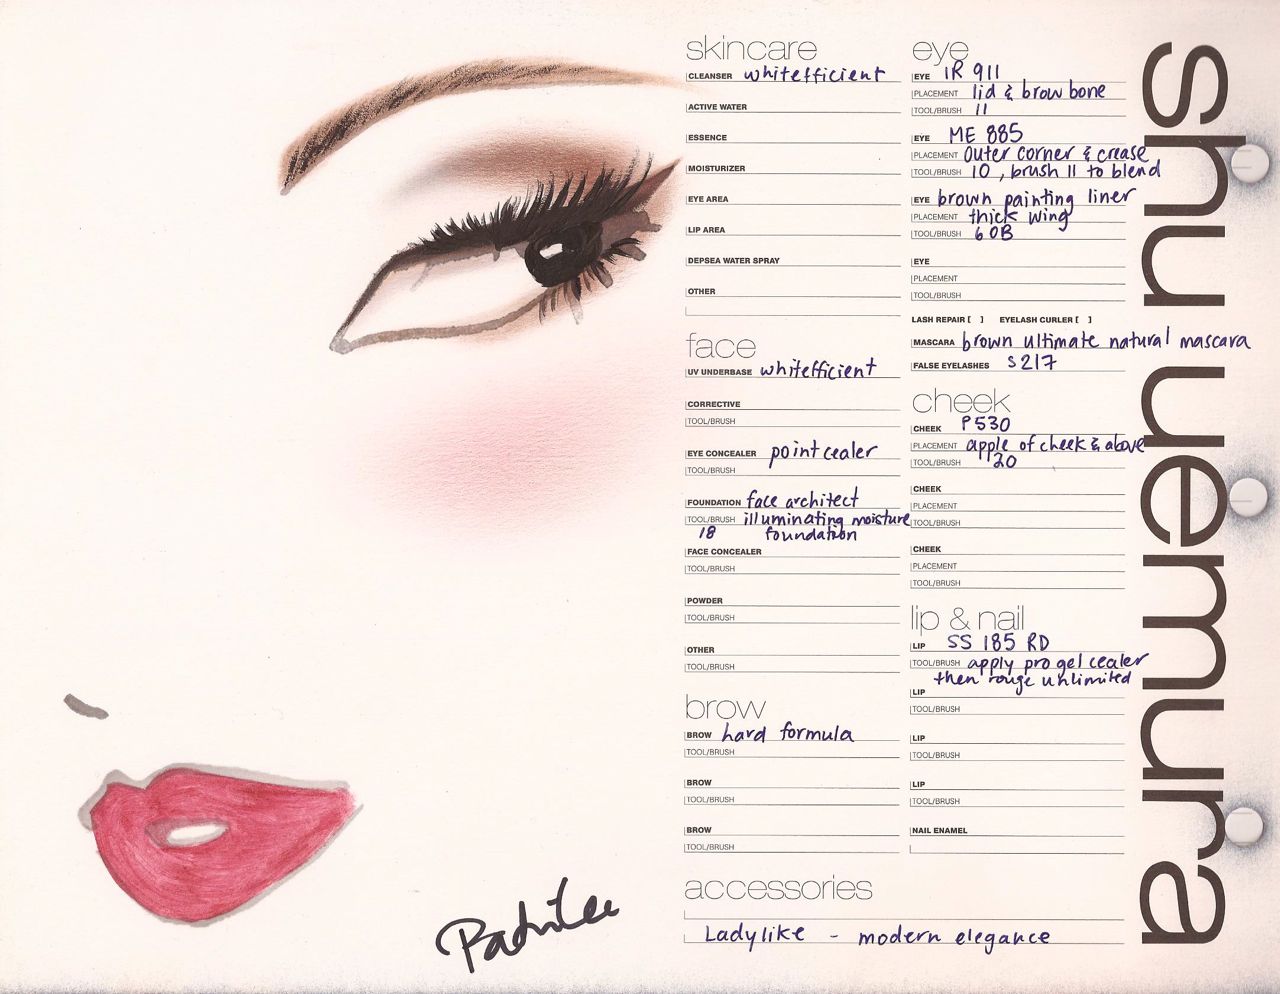 skincare
CLEANSER whitefficient
ACTIVE WATER
ESSENCE
MOISTURIZER
EYE AREA
LIP AREA
DEPSEA WATER SPRAY
OTHER
face
UV UNDERBASE whitefficient
CORRECTIVE
TOOL/BRUSH
EYE CONCEALER point cealer
TOOL/BRUSH
FOUNDATION face architect
TOOL/BRUSH illuminating moisture
18 foundation
FACE CONCEALER
TOOL/BRUSH
POWDER
TOOL/BRUSH
OTHER
TOOL/BRUSH
brow
BROW hard formula
TOOL/BRUSH
BROW
TOOL/BRUSH
BROW
TOOL/BRUSH
eye
EYE IR 911
PLACEMENT lid & brow bone
TOOL/BRUSH 11
EYE ME 885
PLACEMENT outer corner & crease
TOOL/BRUSH 10, brush 11 to blend
EYE brown painting liner
PLACEMENT thick wing
TOOL/BRUSH 60B
EYE
PLACEMENT
TOOL/BRUSH
LASH REPAIR [ ] EYELASH CURLER [ ]
MASCARA brown ultimate natural mascara
FALSE EYELASHES S217
cheek
CHEEK P530
PLACEMENT apple of cheek & above
TOOL/BRUSH 20
CHEEK
PLACEMENT
TOOL/BRUSH
CHEEK
PLACEMENT
TOOL/BRUSH
lip & nail
LIP SS 185 RD
TOOL/BRUSH apply pro gel cealer
then rouge unlimited
LIP
TOOL/BRUSH
LIP
TOOL/BRUSH
LIP
TOOL/BRUSH
NAIL ENAMEL
accessories
Ladylike - modern elegance
shu uemura